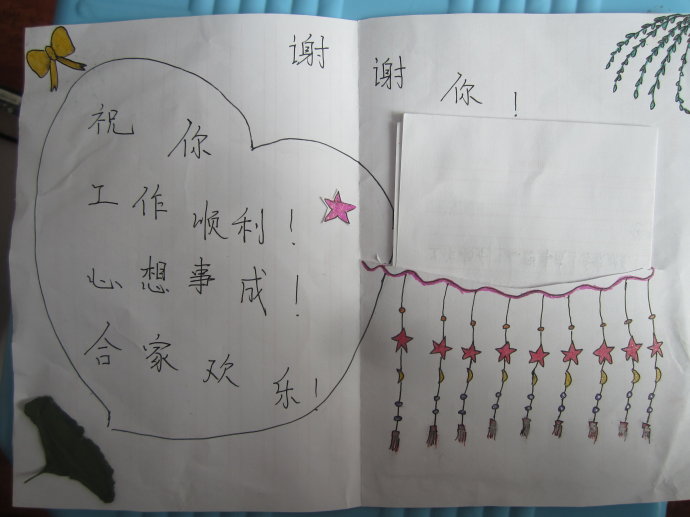 谢谢你!
祝你
工作顺利!
心想事成!
合家欢乐!